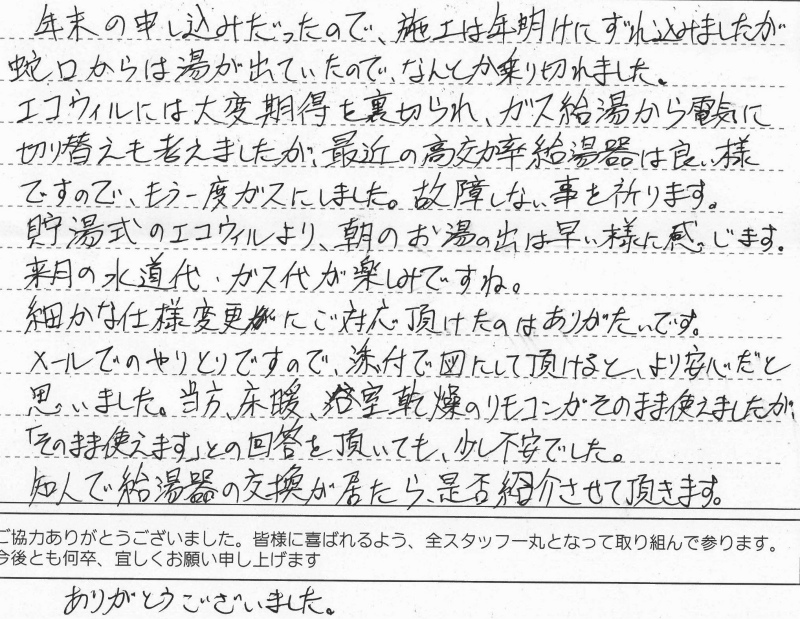 年末の申し込みだったので、施工は年明けにずれ込みましたが
蛇口からは湯が出ていたので、なんとか乗り切れました。
エコウィルには大変期待を裏切られ、ガス給湯から電気に
切り替えも考えましたが、最近の高効率給湯器は良い様
ですので、もう一度ガスにしました。故障しない事を祈ります。
貯湯式のエコウィルより、朝のお湯の出は早い様に感じます。
来月の水道代・ガス代が楽しみですね。
細かな仕様変更にご対応頂けたのはありがたいです。
メールでのやりとりですので、添付で図にして頂けると、より安心だと
思いました。当方、床暖、浴室乾燥のリモコンがそのまま使えましたが、
「そのまま使えます」との回答を頂いても、少し不安でした。
知人で給湯器の交換が居たら、是否紹介させて頂きます。
ご協力ありがとうございました。皆様に喜ばれるよう、全スタッフ一丸となって取り組んで参ります。
今後とも何卒、宜しくお願い申し上げます
ありがとうございました。